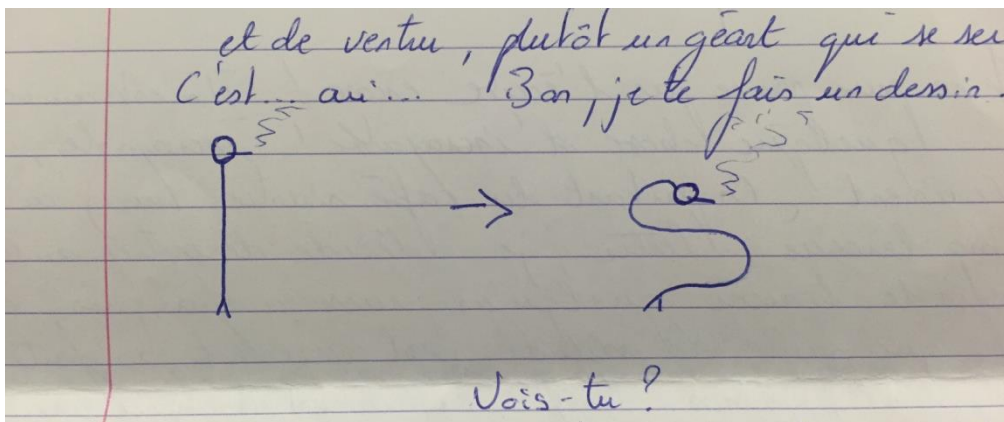 et de ventru, plutôt un géant qui se
C'est... oui... Bon, je te fais un dessin.
Vois-tu ?